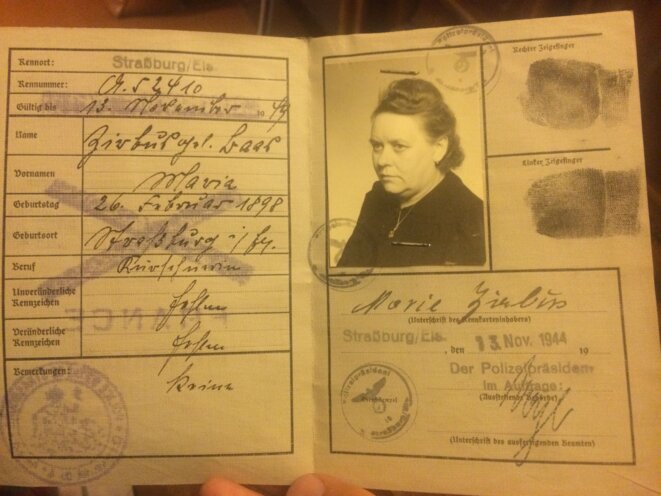 Kennort: Straßburg/Els.
Kennummer: A.52410
Gültig bis 13. November 1949
Name Zirbus geb. Baas
Vornamen Maria
Geburtstag 26. Februar 1898
Geburtsort Straßburg i/
Beruf
Unveränderliche Kennzeichen fehlen
Veränderliche Kennzeichen fehlen
Bemerkungen: keine
FRANCE
Rechter Zeigefinger
Linker Zeigefinger
Marie Zirbus
(Unterschrift des Kennkarteninhabers)
Straßburg/Els. , den 13. Nov. 1944 19
Der Polizeipräsident
Im Auftrage:
(Ausstellende Behörde)
(Unterschrift des ausfertigenden Beamten)